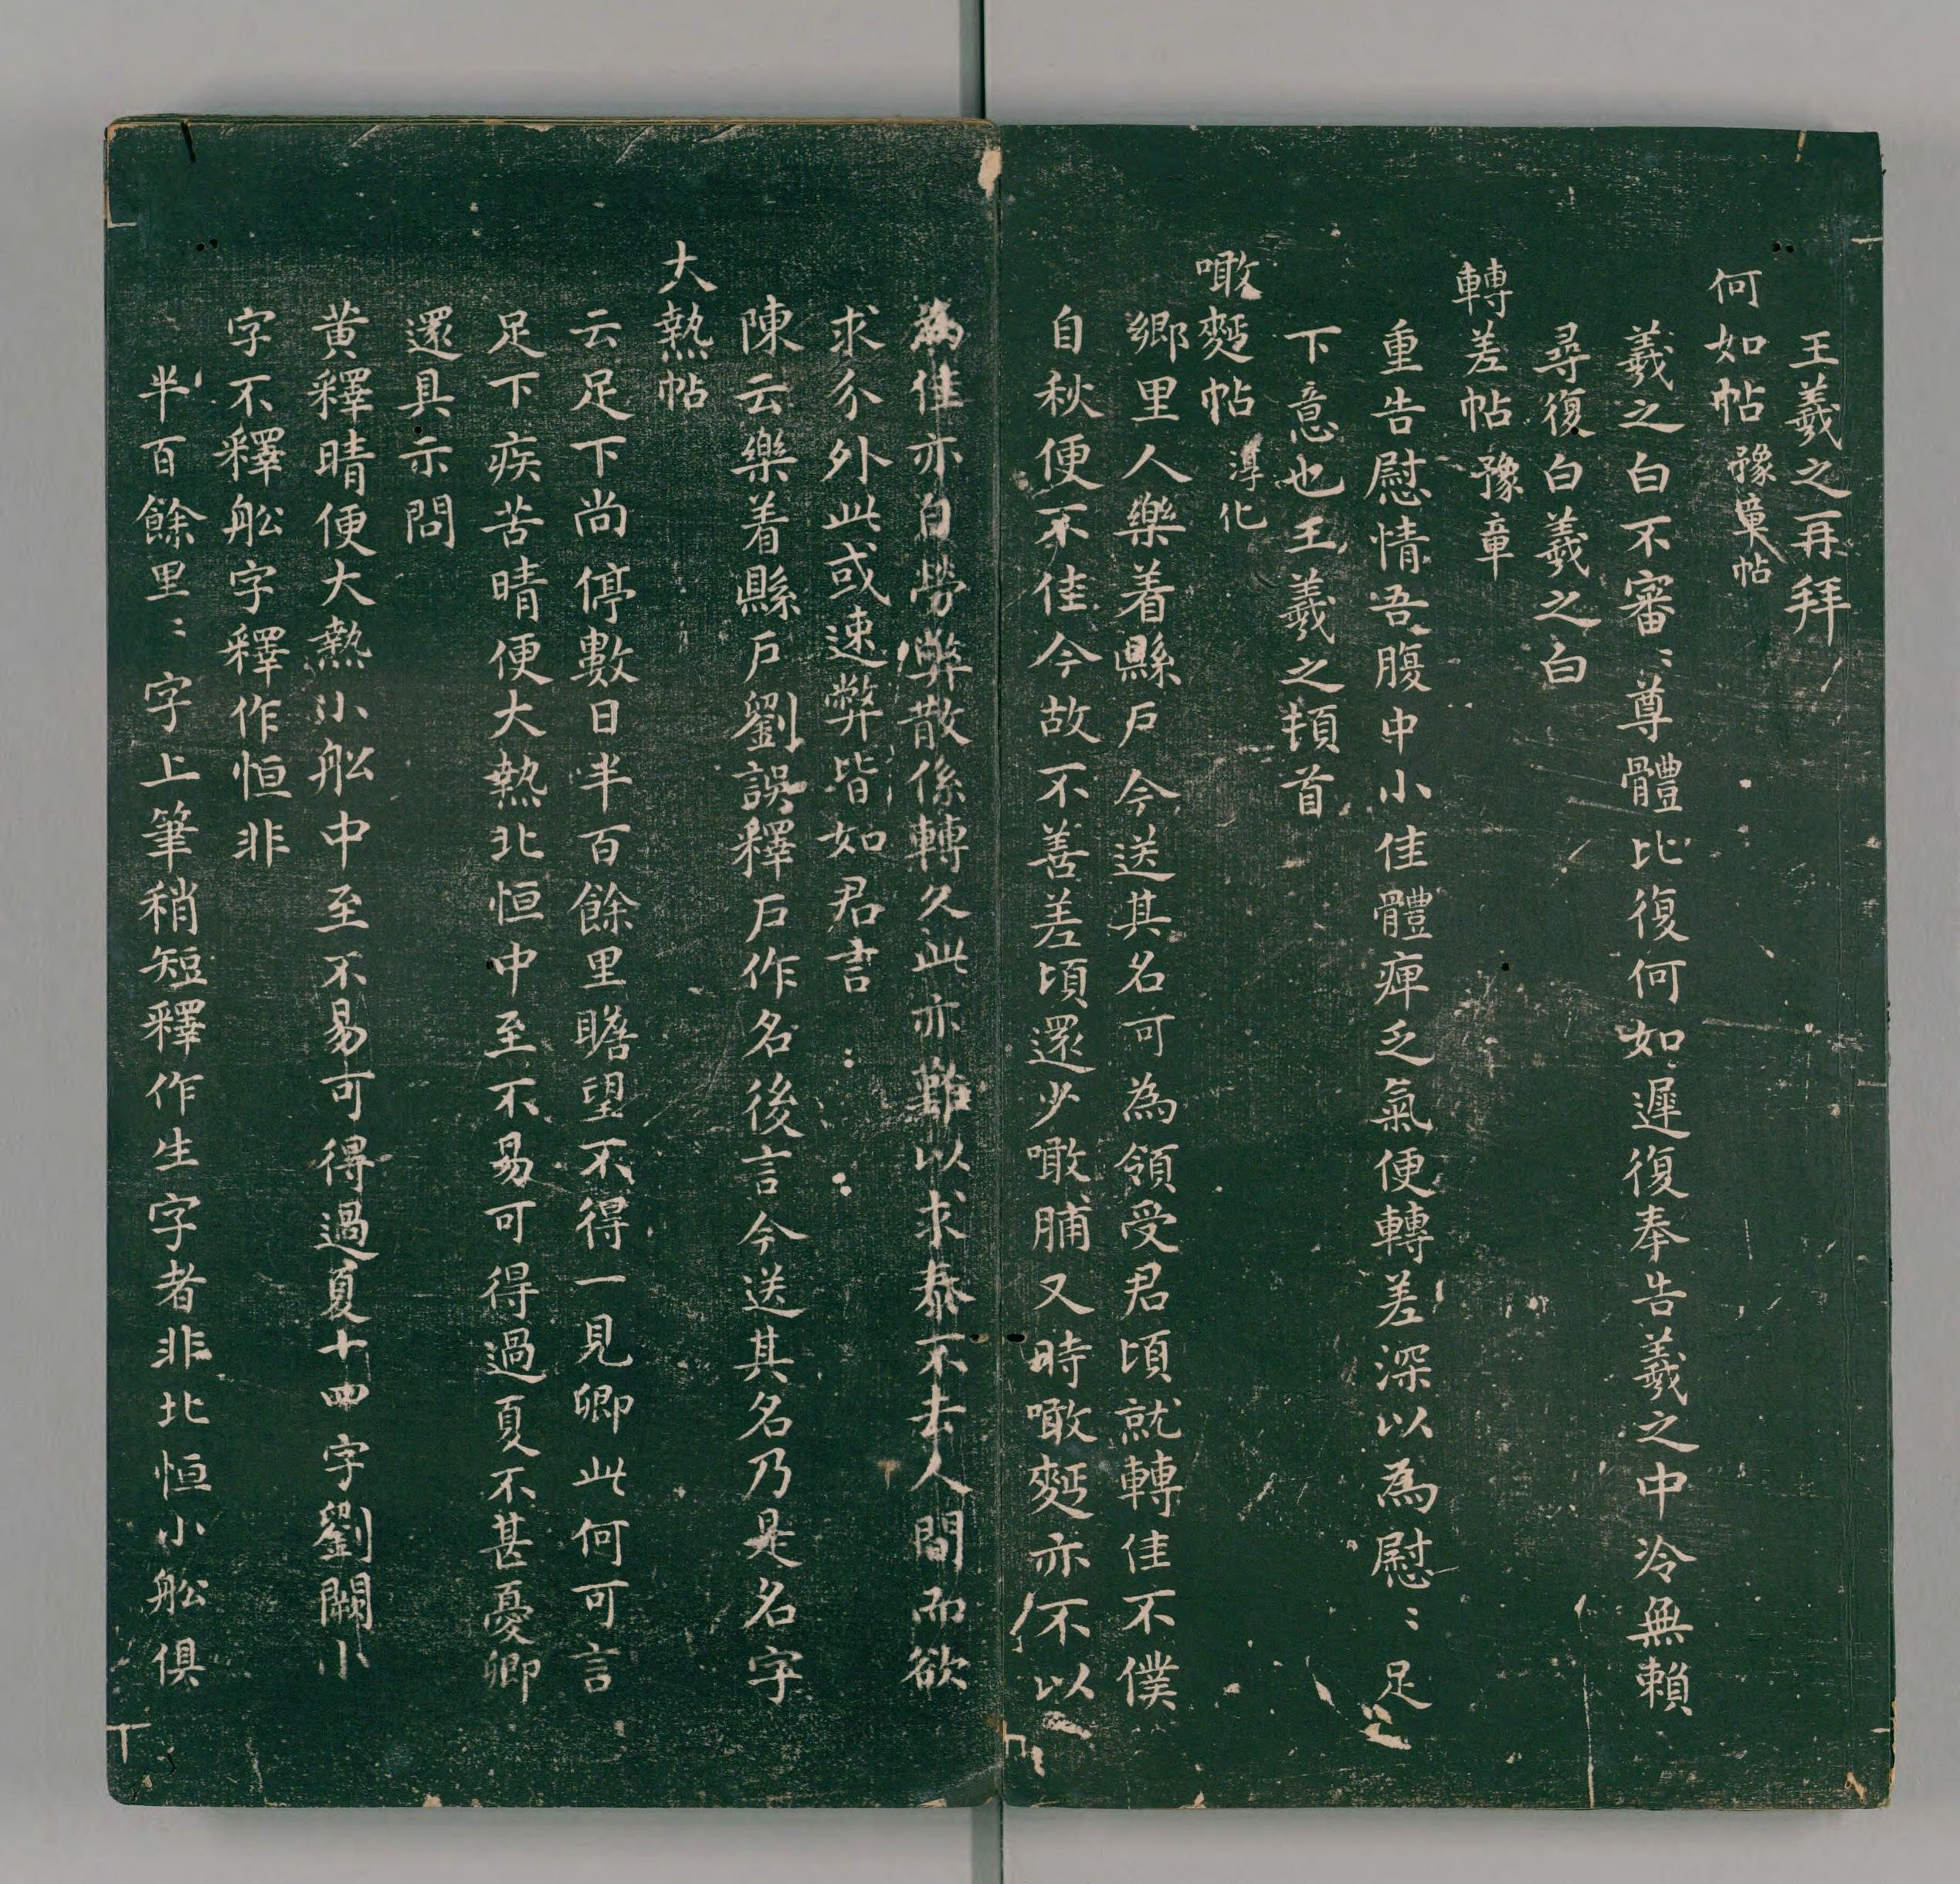 王羲之再拜
何如帖 豫章帖
羲之白不審〻尊體比復何如遲復奉告羲之中冷無賴
尋復白羲之白
轉差帖 豫章
重告慰情吾腹中小佳體痺乏氣便轉差深以為慰〻足
下意也王羲之頓首
噉麪帖 淳化
鄉里人樂着縣戶今送其名可為領受君頃就轉佳不僕
自秋便不佳今故不善差頃還少噉脯又時噉麪亦不以
為佳亦自勞弊散係轉久此亦難以求泰不去人間而欲
求分外此或速弊皆如君言
陳云樂着縣戶劉誤釋戶作名後言今送其名乃是名字
大熱帖
云足下尚停數日半百餘里瞻望不得一見卿此何可言
足下疾苦晴便大熱北恒中至不易可得過夏不甚憂卿
還具示問
黃釋晴便大熱小舩中至不易可得過夏十四字劉闕小
字不釋舩字釋作恒非
半百餘里〻字上筆稍短釋作生字者非北恒小舩俱